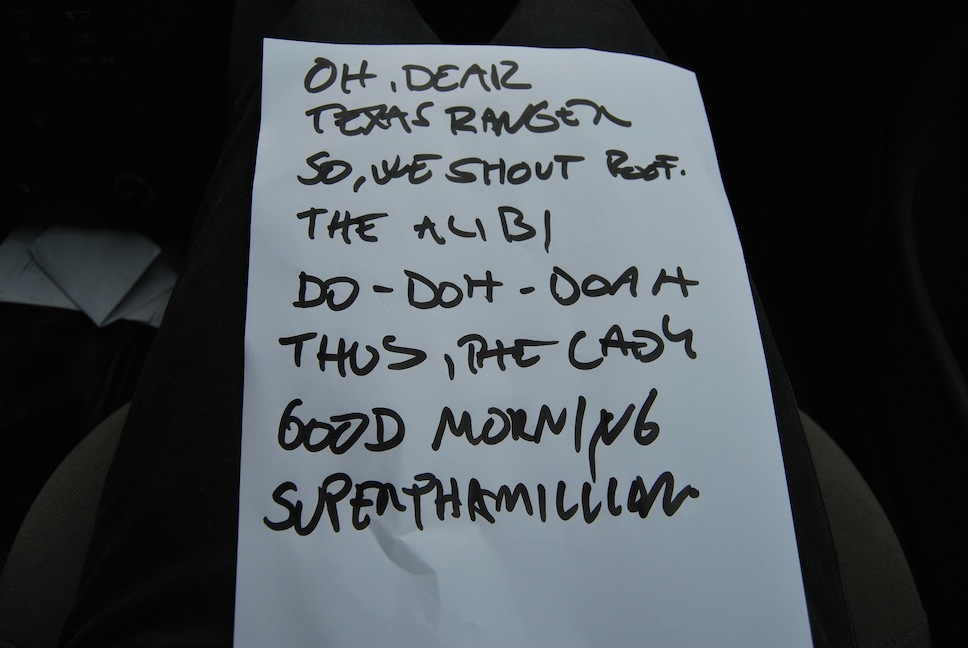 OH, DEAR
TEXAS RANGER
SO, WE SHOUT
THE ALIBI
DO-DOH-DOAH
THUS, THE LADY
GOOD MORNING
SUPERTHAMILLIAN